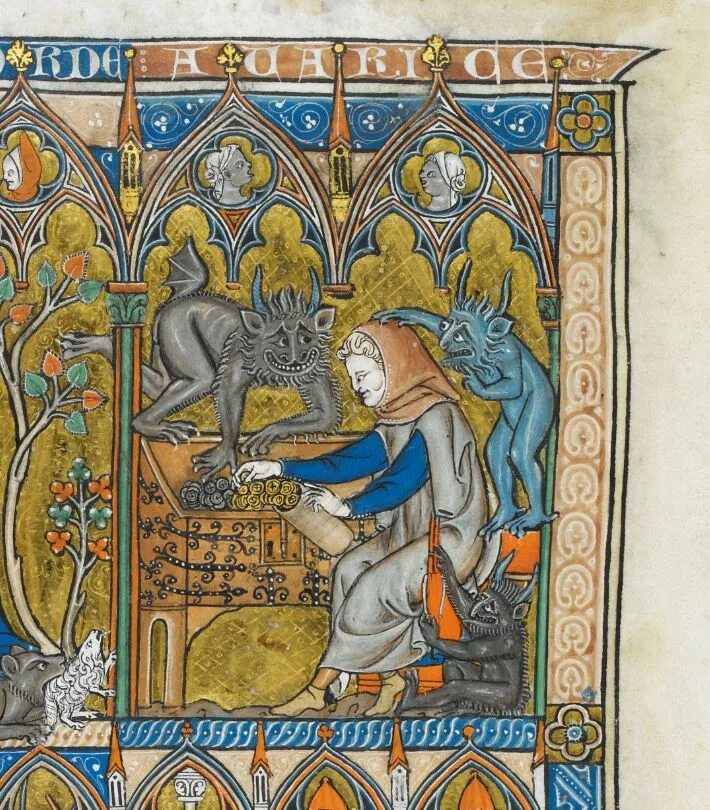 ORDE : AVARICE